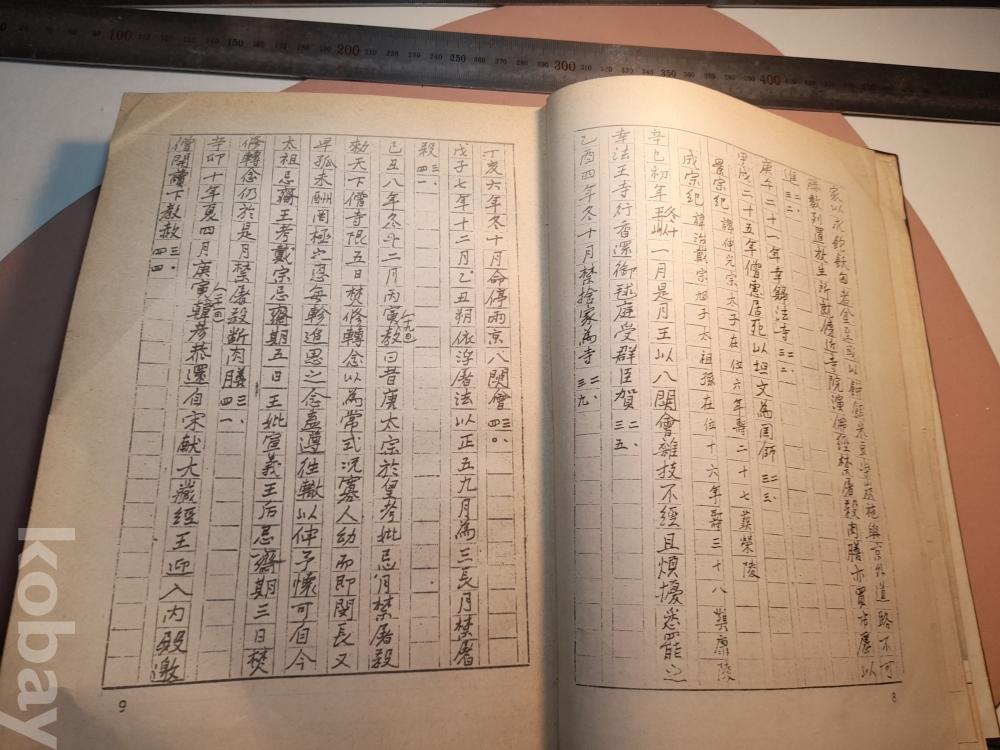 陳數列置放生所就傍近寺院演佛經禁屠殺肉膳亦買市廛以
進 三二.
庚午二十一年幸歸法寺 三二.
甲戌二十五年僧惠居死以坦文為国師 三三.
景宗紀 諱伷光宗太子在位六年壽二十七葬榮陵
成宗紀 諱治戴宗旭子太祖孫在位十六年壽三十八葬康陵
辛巳初年冬十一月是月王以八關會雜技不經且煩擾悉罷之
幸法王寺行香還御毬庭受群臣賀 三五.
乙酉四年冬十月禁捨家為寺 三九.
8
丁亥六年冬十月命停兩京八關會 三四〇.
戊子七年十二月乙丑朔依浮屠法以正五九月為三長月禁屠
殺 三四一
己丑八年冬十二月丙寅教曰昔唐太宗於皇考妣忌月禁屠殺
勅天下僧寺限五日焚修轉念以為常式况寡人幼而即閔長又
早孤未酬罔極之
太祖忌齋王考戴宗忌齋期五日王妣宣義王后忌齋期三日焚
修轉念仍於是月禁屠殺断肉膳 三四一.
辛卯十年夏四月庚寅韓彦恭還自宋献大藏經王迎入内殿邀
僧開讀下教赦 三四四.
9
100 150 200 250 300 350 400
kobay